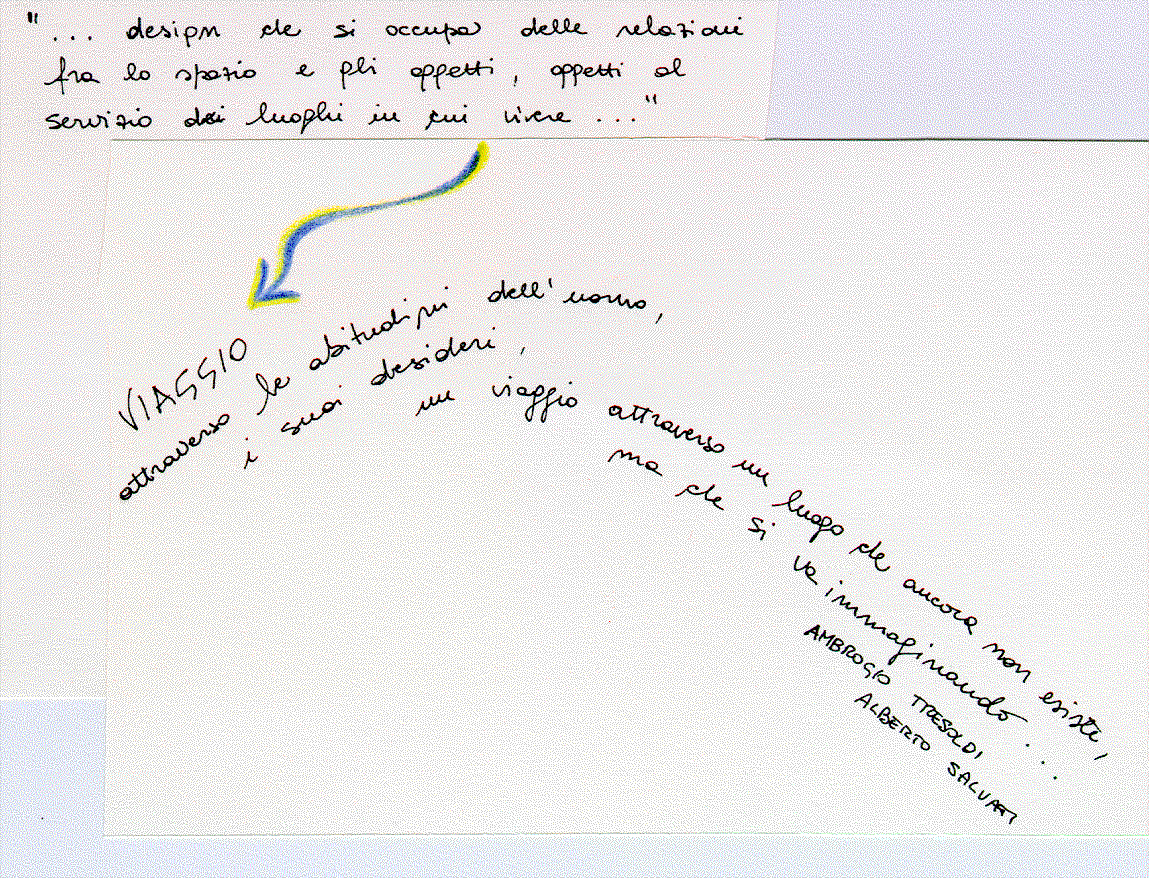 "... design che si occupa delle relazioni
fra lo spazio e gli oggetti, oggetti al
servizio dei luoghi in cui vivere ..."
VIAGGIO
attraverso le abitudini dell'uomo,
i suoi desideri,
un viaggio attraverso un luogo che ancora non esiste,
ma che si va immaginando...
AMBROGIO TRESOLDI
ALBERTO SALVATI